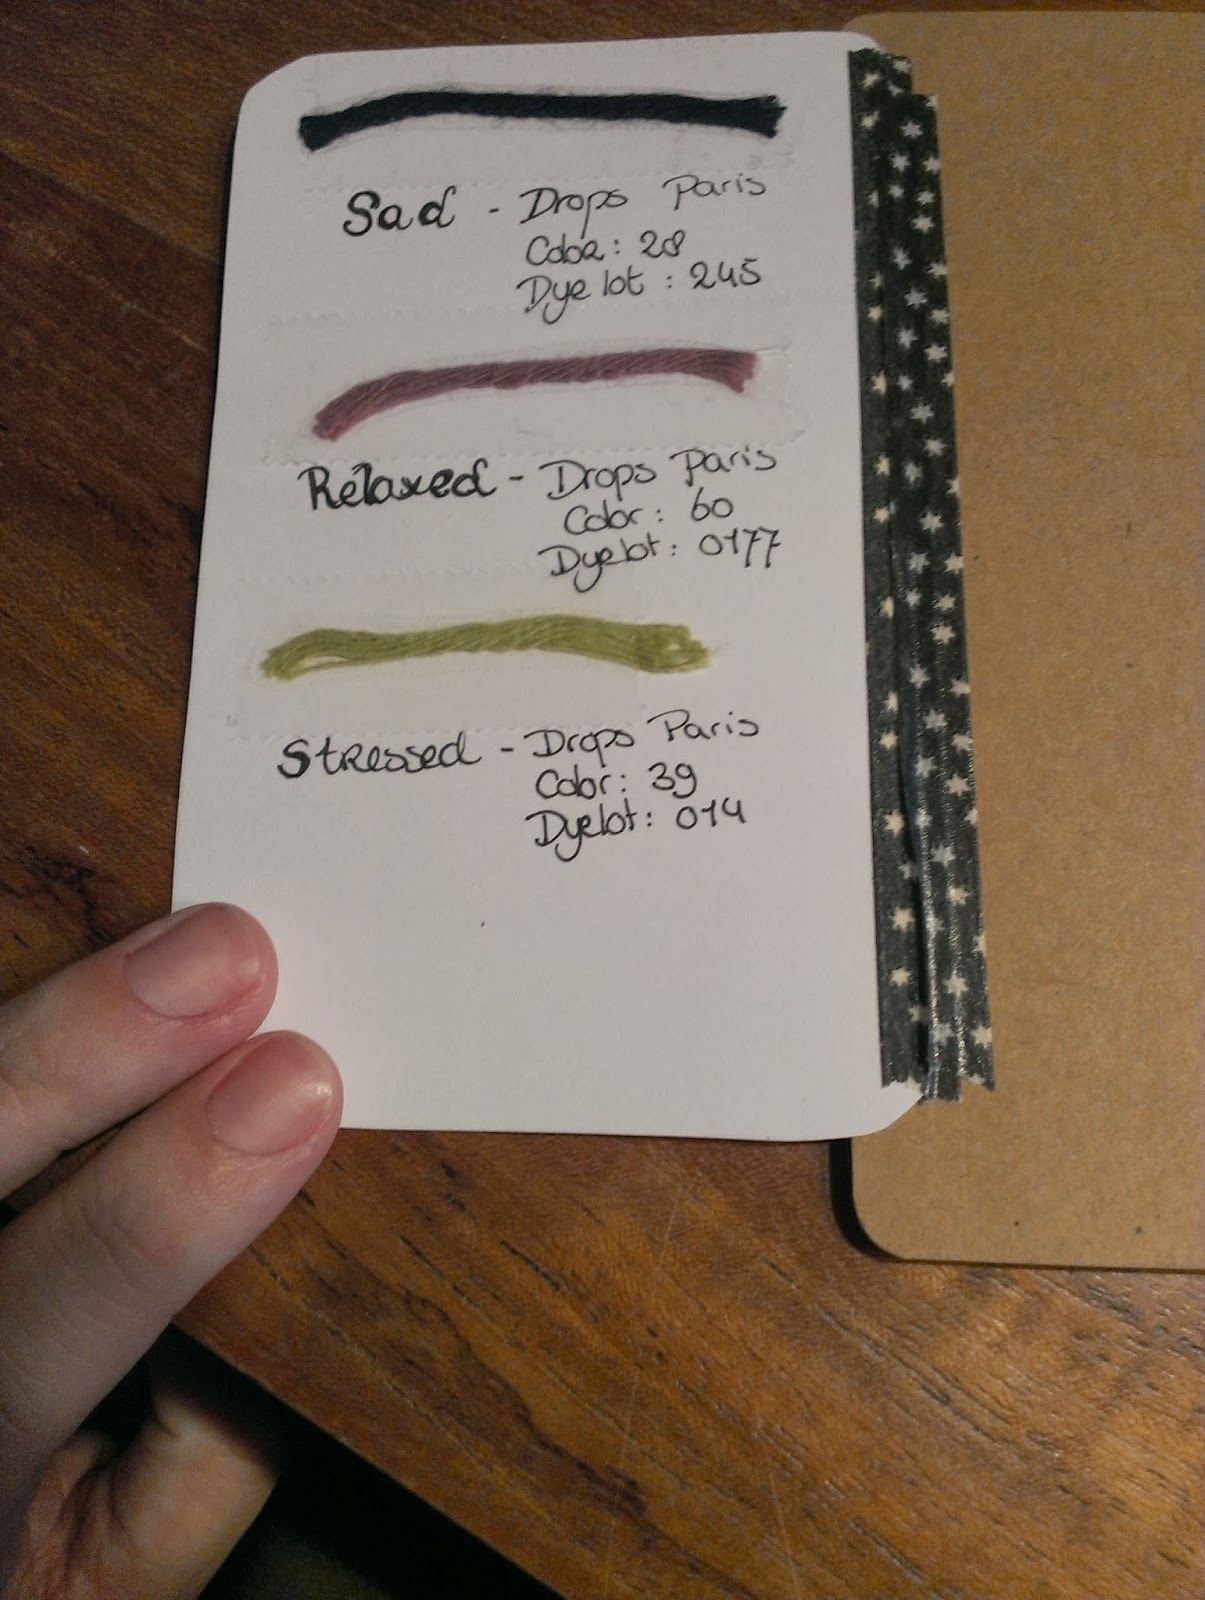 Sad - Drops Paris
Color: 28
Dye lot: 245
Relaxed - Drops Paris
Color: 60
Dyelot: 0177
Stressed - Drops Paris
Color: 39
Dyelot: 014